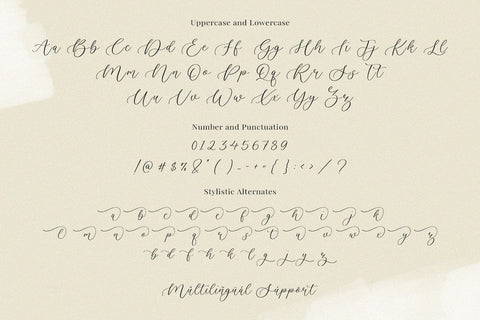 Uppercase and Lowercase
Aa Bb Cc Dd Ee Ff Gg Hh Ii Jj Kk Ll
Mm Nn Oo Pp Qq Rr Ss Tt
Uu Vv Ww Xx Yy Zz
Number and Punctuation
0123456789
!@#$%&*()_-+={}:<>/?
Stylistic Alternates
a b c d e f g h i j k
l m n o p q r s t u v w x y z
b d f h k l g j y z
Mültilingüäl Süpport